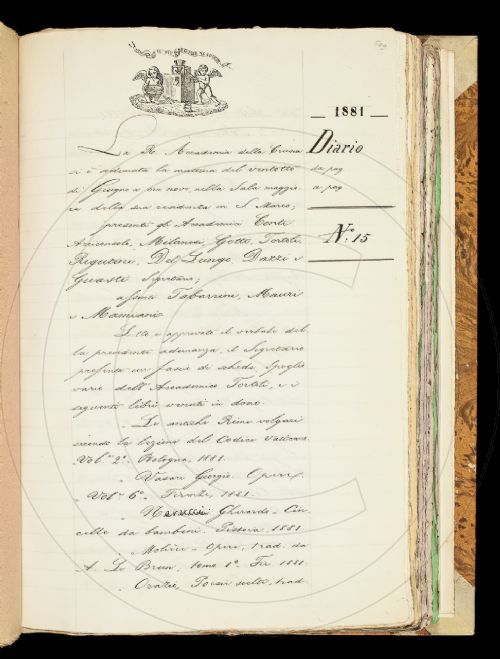 1881
Diario
da pag
a pag
N.° 15
La R. Accademia della Crusca
si è adunata la mattina del ventotto
di Giugno a ore nove, nella Sala maggio-
re della sua residenza in S. Marco;
presenti gli Accademici Conti
Arciconsolo, Milanesi, Gotti, Tortoli,
Rigutini, Del Lungo, Dazzi e
Guasti Segretario;
assenti Tabarrini, Mauri
e Mamiani.
Letto e approvato il verbale del-
la precedente adunanza, il Segretario
presenta un fascio di schede, spoglio
vario dell'Accademico Tortoli, e i
seguenti libri venuti in dono.
- Le antiche Rime volgari
secondo la lezione del Codice Vaticano
Vol. 2°. Bologna, 1881.
- Vasari Giorgio. Opere.
Vol. 6°. Firenze, 1881.
- Nerucci Gherardo. Cin-
celle da bambini. Pistoia, 1881.
- Molière. Opere, trad. da
A. Le Brun, tomo 1°. Fir. 1881.
- Orazio, Poesie scelte, trad.